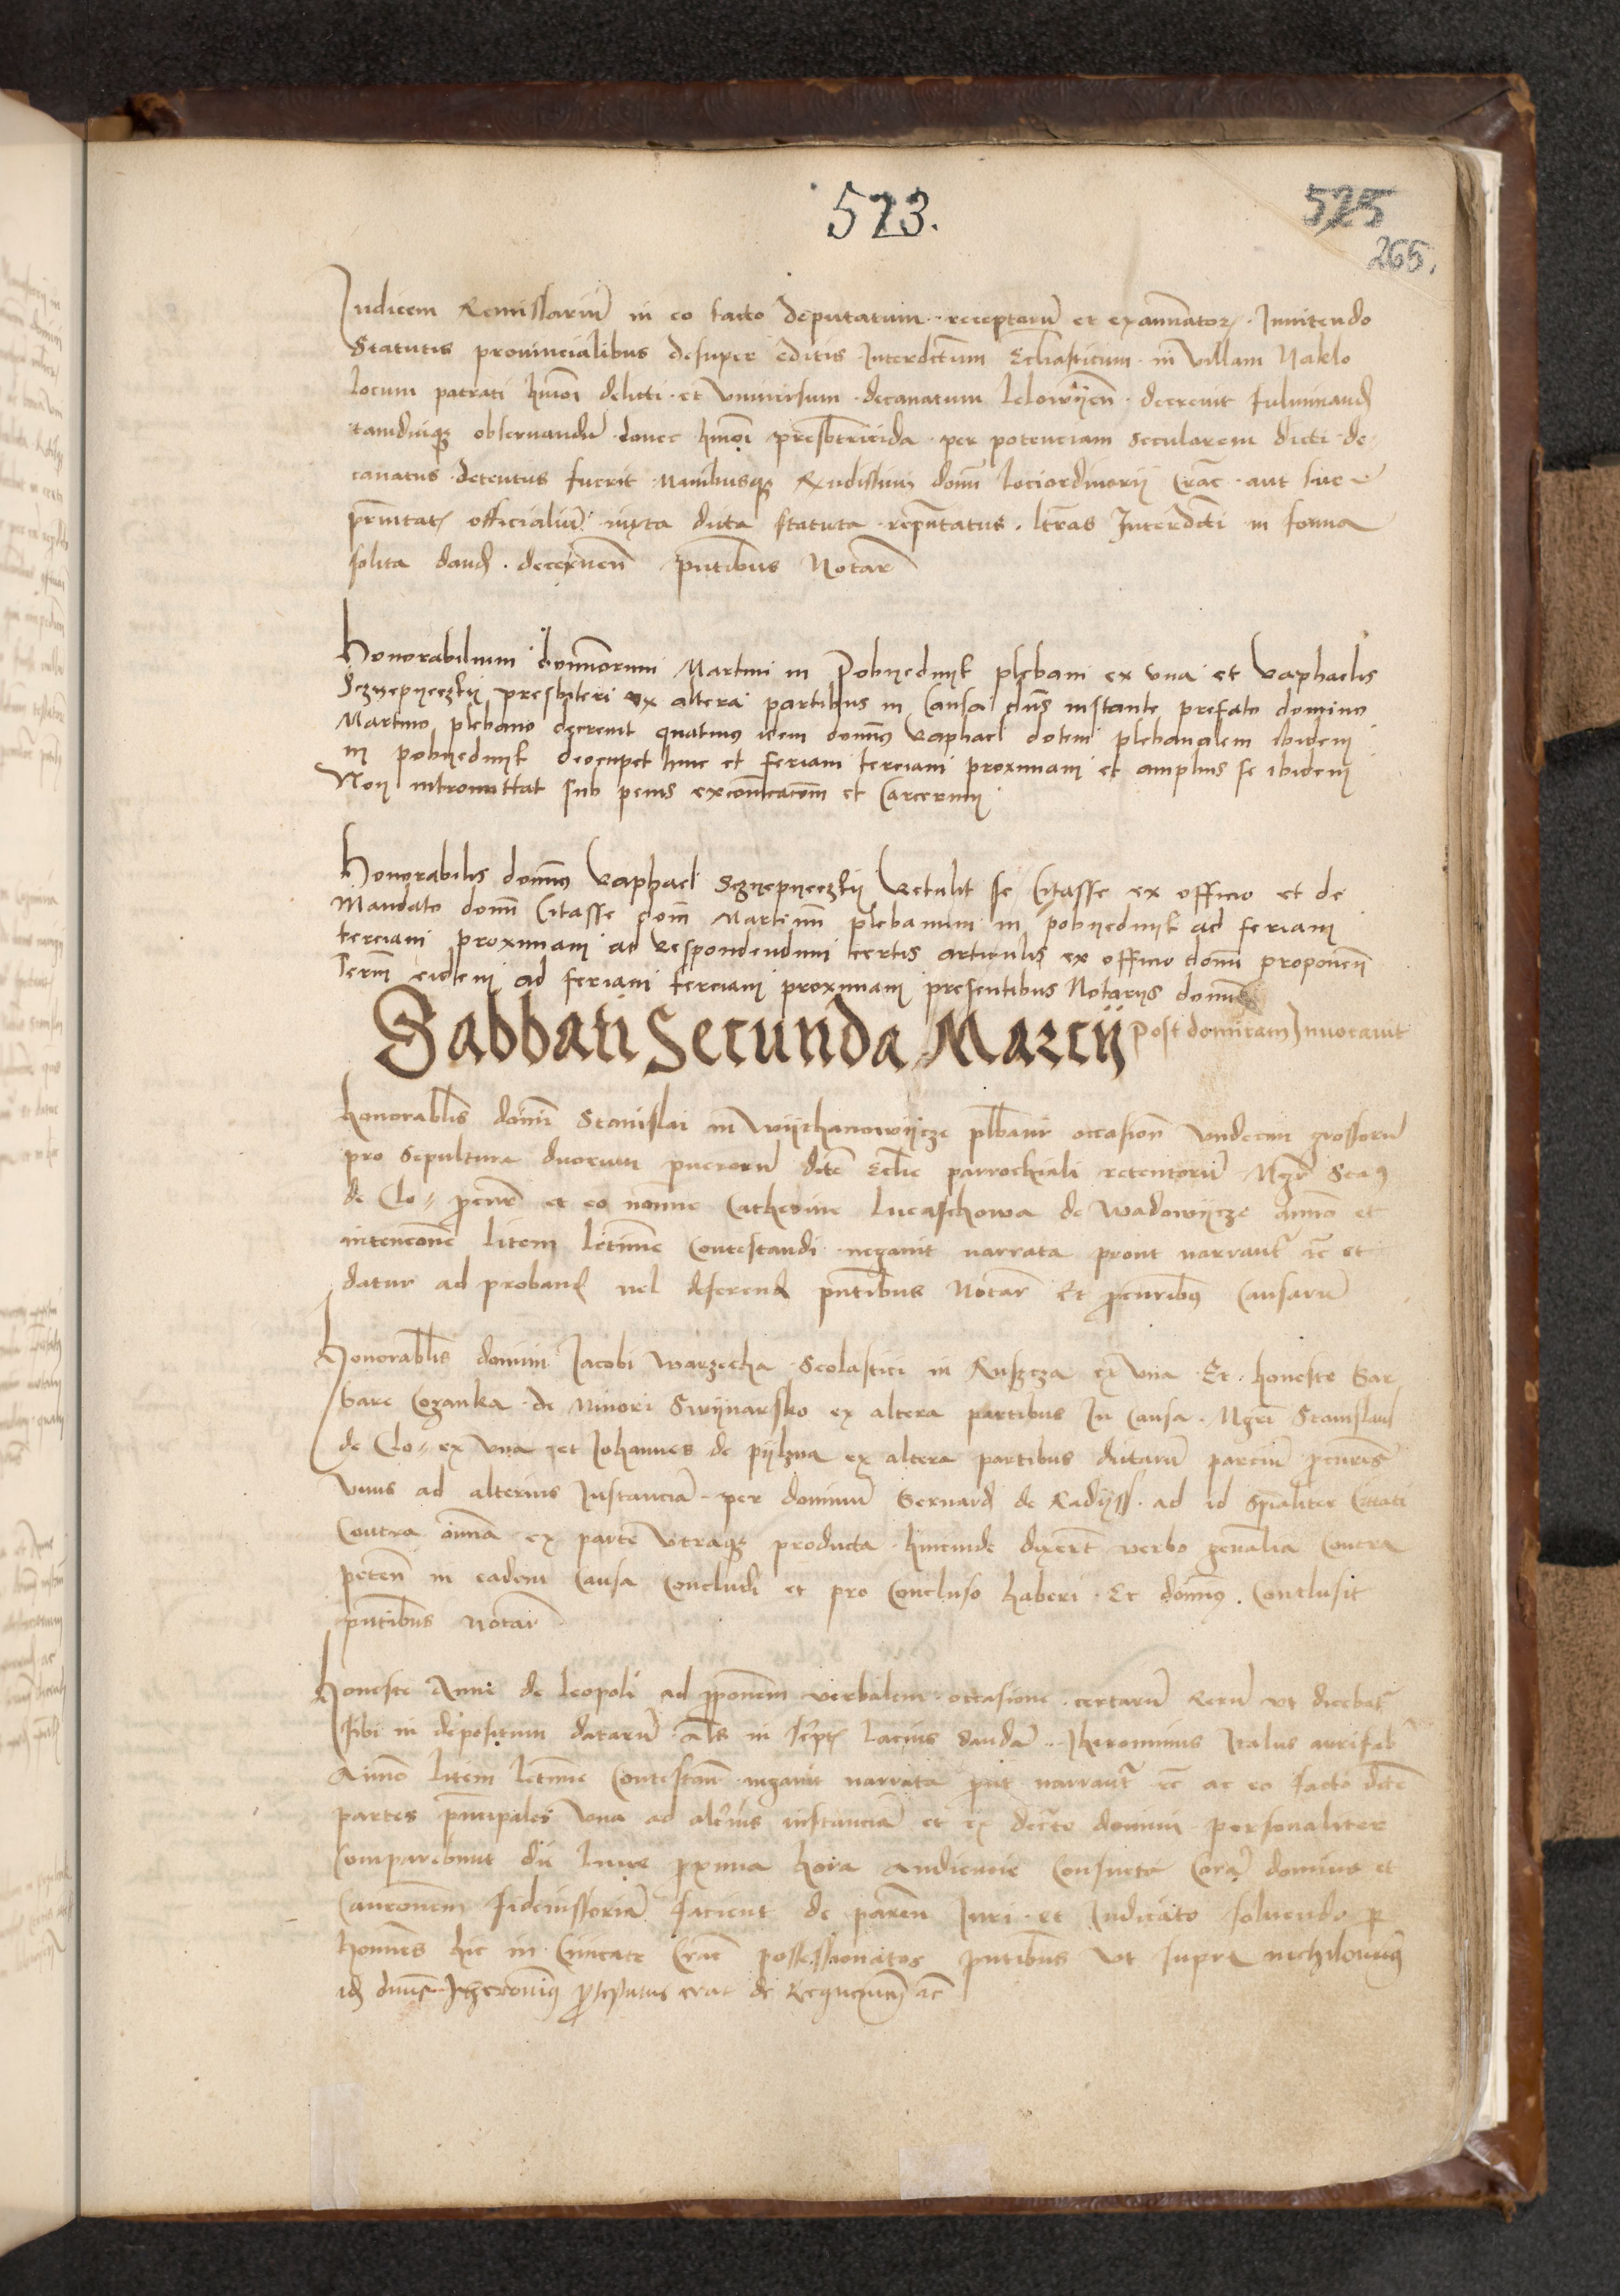 523.
525
265.
Iudicem Remissarium in eo facto deputatum receptarum et examinator. Innitendo
Statutis prouincialibus desuper editis Interdictum Eccliasticum in villam Naklo
locum patrati hmoi delicti et vniuersum decanatum Lelowyen decreuit fulminand
tamdiuque obseruandum donec hmoi presbitericida per potenciam secularem dicti de
canatus detentus fuerit manibusque Rndissimi domi lociordinarii Crac aut sue
officialium iuxta dicta statuta representatus. lras Interdicti in forma
solita dand. decernen pntibus Notar
Honorabilium dominorum Martini in Pobyednyk plebani ex vna et Raphaelis
presbiteri ex altera partibus in Causa dns instante prefato domino
Martino plebano decreuit quatinus idem domnus Raphael dotem plebanalem ibidem
in pobyednyk deocupet hinc et feriam terciam proximam et amplius se ibidem
Non intromittat sub penis excomicacionis et Carcerum
Honorabilis domnus Raphael Retulit se Citasse ex officio et de
Mandato domi Citasse dom Martinum plebanum in pobyednyk ad feriam
terciam proximam ad Respondendum certis articulis ex officio domi proponen
Term eidem ad feriam terciam proximam presentibus Notariis domus
Sabbati Secunda Marcii post domicam Inuocauit
honorablis domi Stanislai in Wythanowycze plbani occasion vndecim grossorum
pro Sepultura duorum puerorum dicte Eclie parrochiali retentorum Mgr Stas
de Clo procur et eo nomine Catherine Lucaschowa de Wadowycze animo et
intencione litem letime Contestandi negauit narrata prout narrantur ac et
datur ad proband uel deferend pntibus Notar Et procuribus Causarum
Honorablis domini Jacobi Warzecha Scolastici in Ruszcza ex vna Et honeste Bar
bare Cozanka de Minori Swynarsko ex altera partibus In Causa Mgri Stanislaus
de Clo ex vna et Johannes de pylzna ex altera partibus dictarum parcium procures
vnus ad alterius Instanciam per dominum Bernard de Radyss ad id spialiter Citati
Contra omnia ex parte vtraque producta hincinde dixerunt verbo genalia Contra
peten in eadem Causa Concludi et pro Concluso haberi Et dominus Conclusit
pntibus notar
Honeste Anne de Leopoli ad pponem verbalem occasione certarum Rerum vt dicebat
sibi in depositum datarum als in script lacius dandam Jheronimus Italus aurifab
Animo litem letime Contestan negauit narrata prout narrantur etc ac eo facto dicte
partes pncipales vna ad alterius instanciam et ex decreto domini personaliter
Comparebunt die lune proxima hora audiencie Consueta Coram domino et
Caucionem fideiussoriam facient de paren Iuri et Iudicato soluendo per
homines hic in Ciuitate Crac possessionatos pntibus vt supra nichilominus
idem Jheronimus protestatus erat de